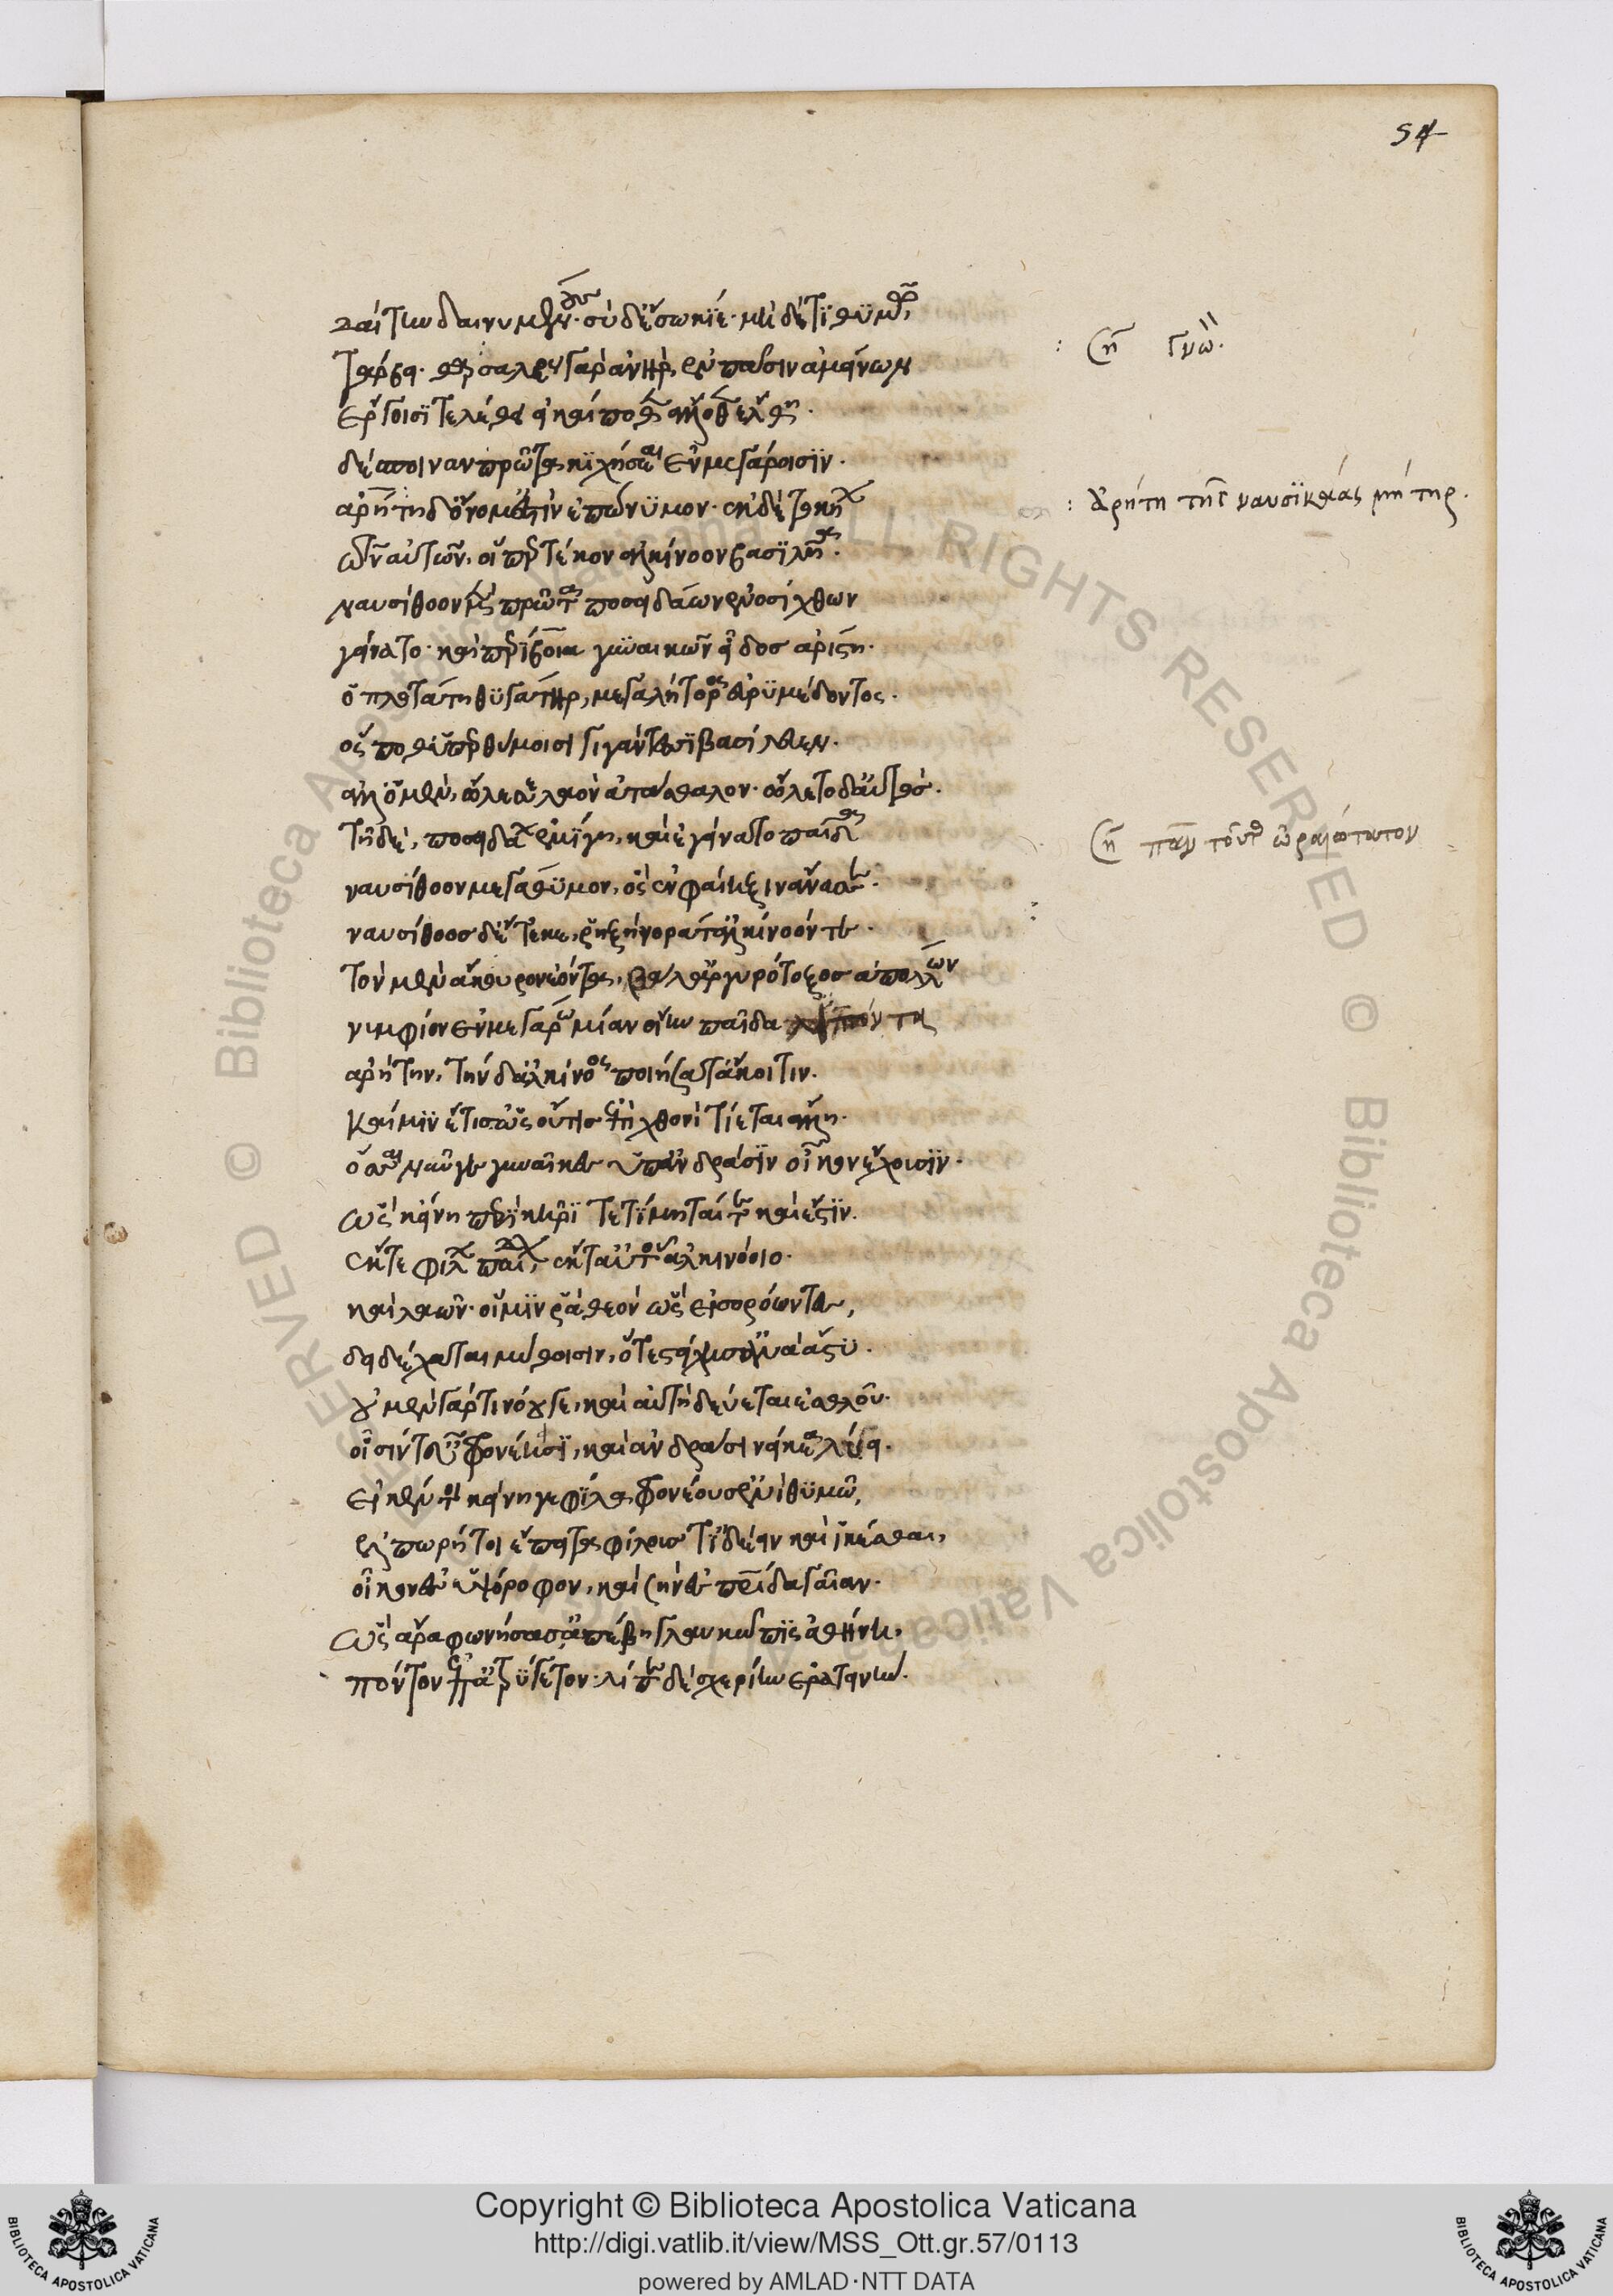 54
δαίτην δαινυμένους· σὺ δ' ἔσω κίε· μὴ δέ τι θυμῶ,
τάρβει· θαρσαλέος γὰρ ἀνὴρ, ἐν πᾶσιν ἀμείνων
ἔργοισι τελέθει εἰ καί ποθεν ἄλλοθεν ἔλθη.
δέσποιναν πρῶτα κιχήσεαι ἐν μεγάροισιν.
ἀρήτη δ' ὄνομ' ἐστὶν ἐπώνυμον· ἐκ δὲ τοκήων
τῶν αὐτῶν, οἵπερ τέκον ἀλκίνοον βασιλῆα.
ναυσίθοον μὲν πρῶτα ποσειδάων ἐνοσίχθων
γείνατο· καὶ περίβοια γυναικῶν εἶδος ἀρίστη.
ὁπλοτάτη θυγάτηρ, μεγαλήτορος εὐρυμέδοντος.
ὅς ποθ' ὑπερθύμοισι γιγάντεσσι βασίλευεν.
ἀλλ' ὁ μὲν, ὤλεσε λαὸν ἀτάσθαλον· ὤλετο δ' αὐτός.
τῆ δὲ, ποσειδάων ἐμίγη, καὶ ἐγείνατο παῖδα
ναυσίθοον μεγάθυμον, ὃς ἐν φαίηξιν ἄνασσε.
ναυσίθοος δ' ἔτεκε, ῥηξήνορά τ' ἀλκίνοόν τε.
τὸν μὲν ἄκουρον ἐόντα, βάλ' ἀργυρότοξος ἀπόλλων
νυμφίον ἐν μεγάρω μίαν οἴην παῖδα λιπόντα
ἀρήτην, τὴν δ' ἀλκίνοος ποιήσατ' ἄκοιτιν.
καί μιν ἔτισ' ὡς οὔτις ἐπὶ χθονὶ τίεται ἄλλη.
ὅσσαι νῦν γε γυναῖκες ὑπ' ἀνδράσιν οἶκον ἔχουσιν.
ὣς κείνη περὶ κῆρι τετίμηταί τε καὶ ἔστιν.
ἔκ τε φίλων παίδων, ἔκ τ' αὐτοῦ ἀλκινόοιο.
καὶ λαῶν· οἵ μίν ῥα θεὸν ὣς εἰσορόωντες,
δειδέχαται μύθοισιν, ὅτε στείχησ' ἀνὰ ἄστυ.
οὐ μὲν γάρ τι νόου γε, καὶ αὐτὴ δεύεται ἐσθλοῦ.
οἷσίν τ' εὖ φρονέησι, καὶ ἀνδράσι νείκεα λύει.
εἰ κέν τοι κείνη γε φίλα φρονέουσ' ἐνὶ θυμῶ,
ἐλπωρή τοι ἔπειτα φίλους τ' ἰδέειν καὶ ἱκέσθαι,
οἶκον ἐς ὑψόροφον, καὶ σὴν ἐς πατρίδα γαῖαν.
ὣς ἄρα φωνήσασ' ἀπέβη γλαυκῶπις ἀθήνη,
πόντον ἐπ' ἀτρύγετον· λίπε δὲ σχερίην ἐρατεινήν.
: ση γνω.
: ἀρήτη τῆς ναυσικάας μήτηρ.
ση πᾶν τοῦτο ὡραιότατον
© Biblioteca Apostolica Vaticana ALL RIGHTS RESERVED © Biblioteca Apostolica Vaticana
Copyright © Biblioteca Apostolica Vaticana
http://digi.vatlib.it/view/MSS_Ott.gr.57/0113
powered by AMLAD·NTT DATA
BIBLIOTECA APOSTOLICA VATICANA
BIBLIOTECA APOSTOLICA VATICANA